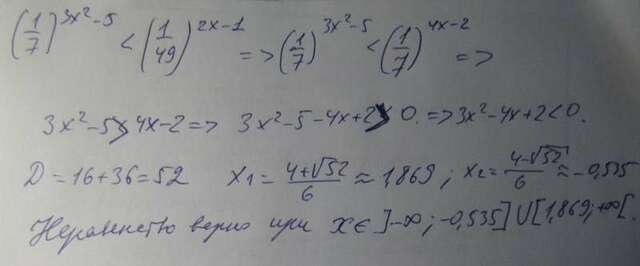 (1/7)^3x²-5 < (1/49)^2x-1 => (1/7)^3x²-5 < (1/7)^4x-2 =>
3x²-5>4x-2=> 3x²-5-4x+2>0. =>3x²-4x+2<0.
D=16+36=52 x₁= 4+√52/6 ≈1,869; x₂= 4-√52/6 ≈-0,535
Неравенство верно при x∈]-∞;-0,535]∪[1,869;+∞[.